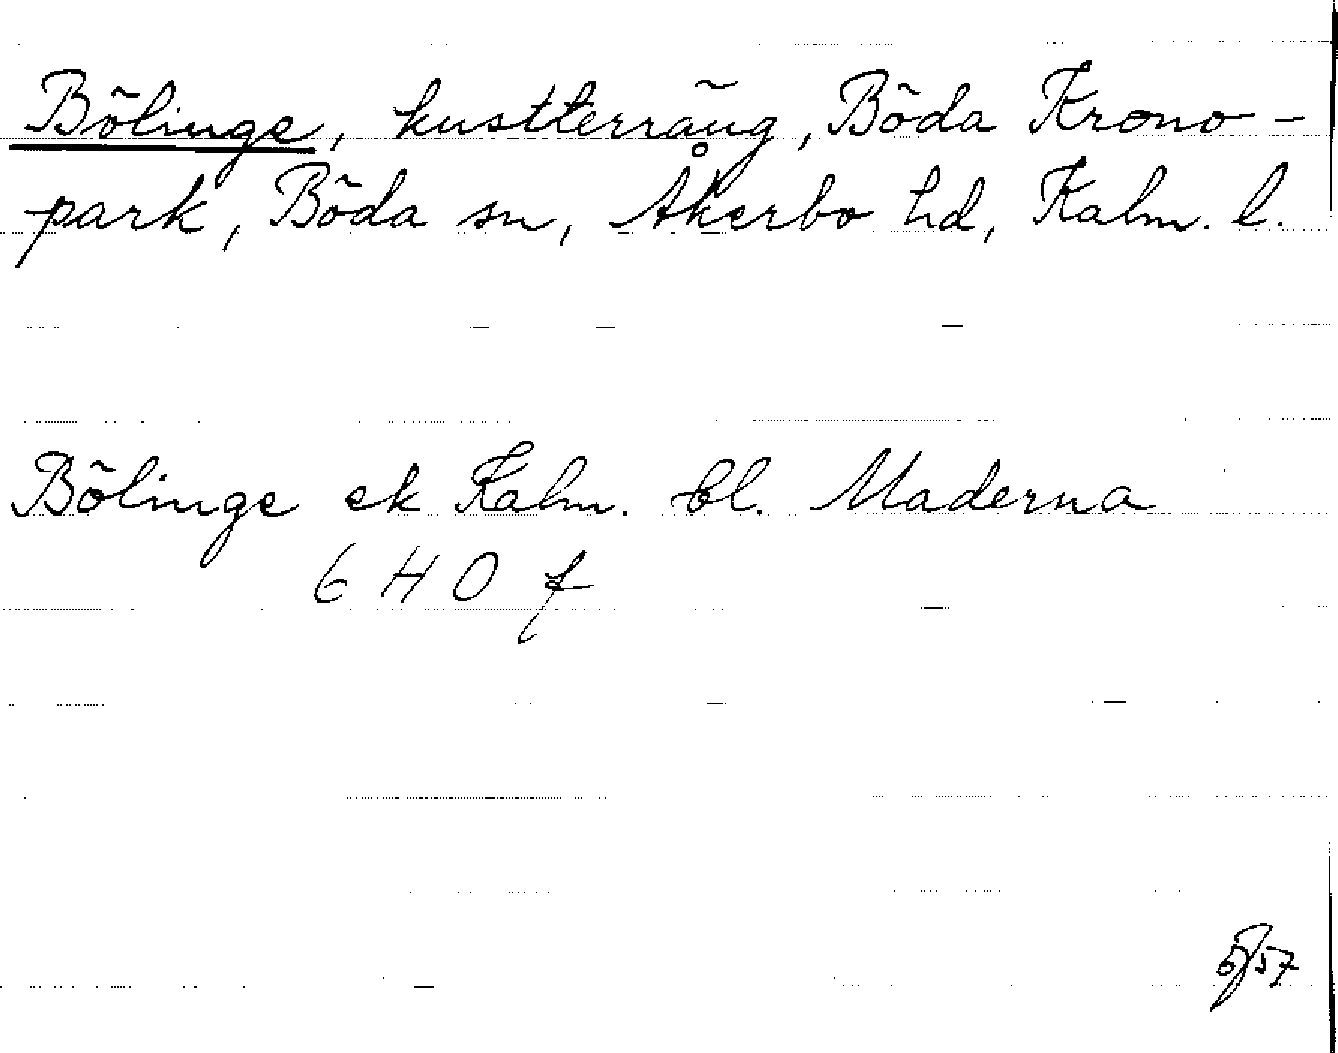 Bölinge, kustterräng, Böda Krono-
park, Böda sn, Åkerbo hd, Kalm. l.
Bölinge ek Kalm. bl. Maderna
6 H 0 f